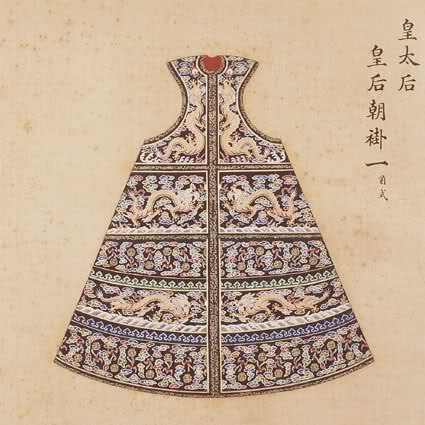 皇太后
皇后朝褂一 前式